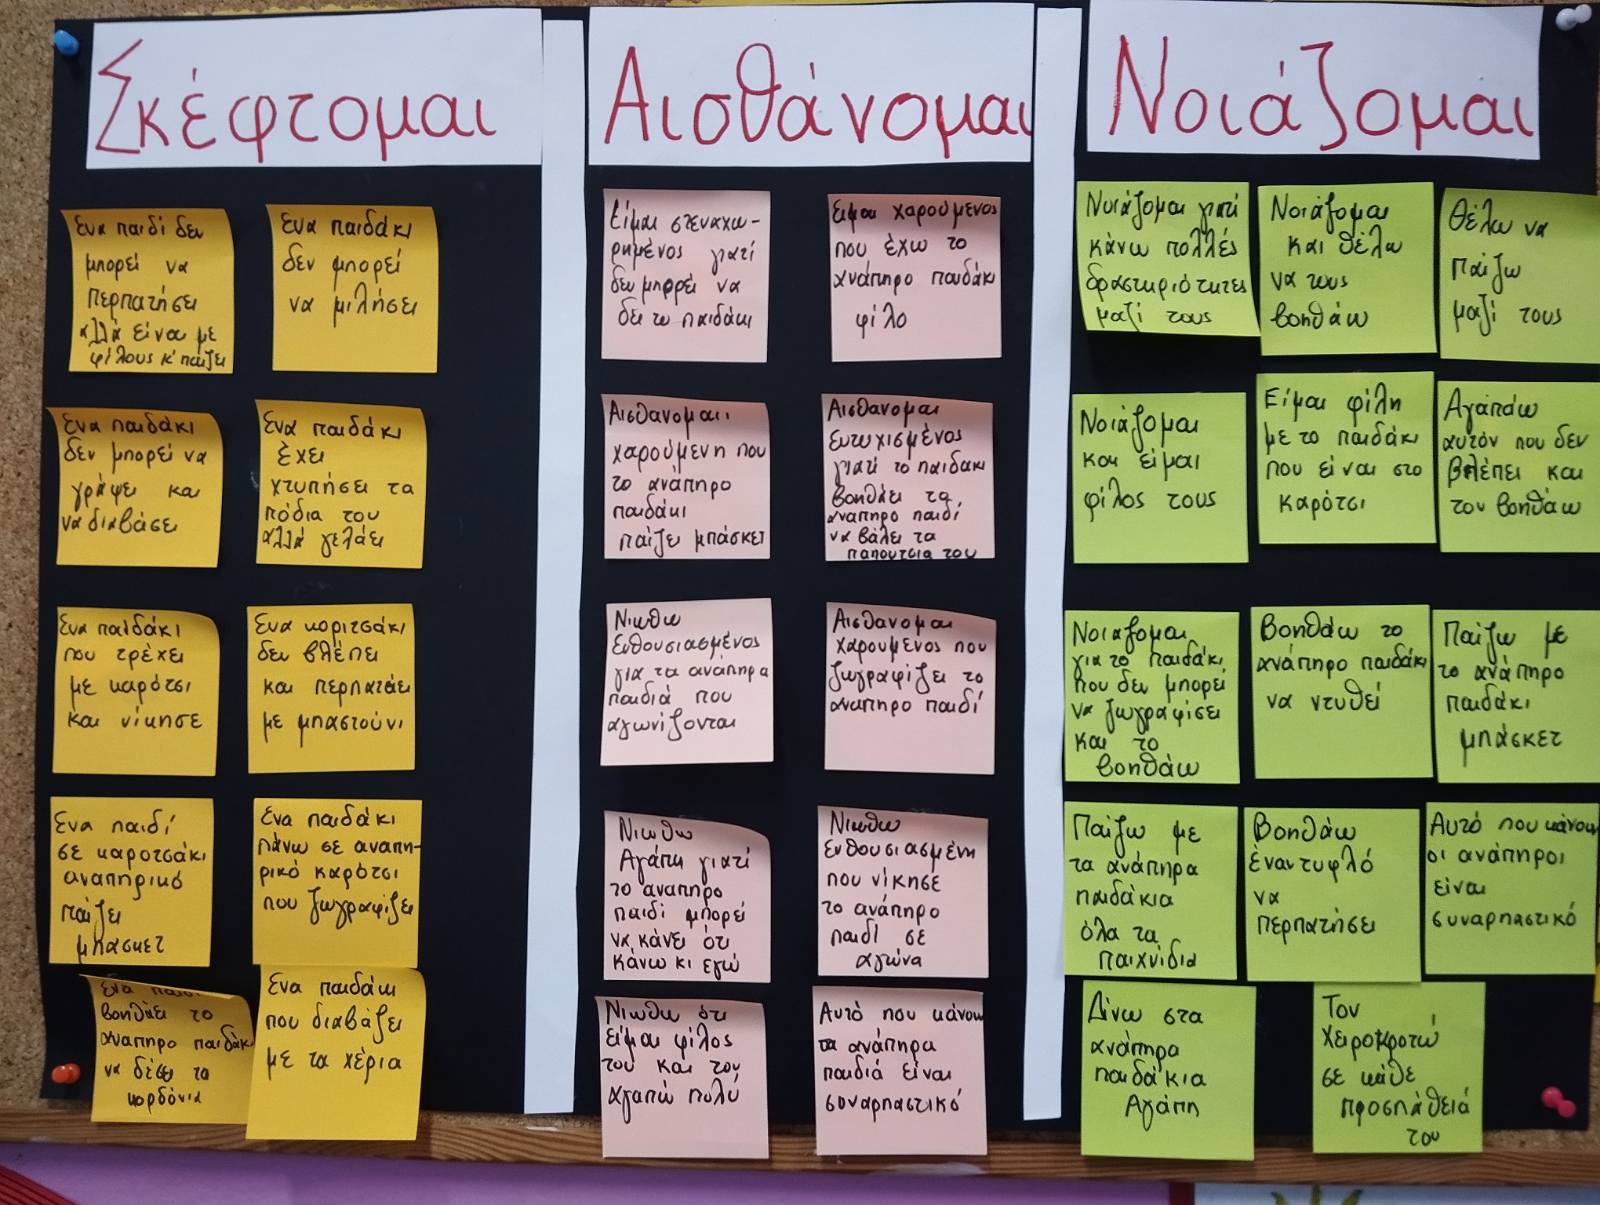 Σκέφτομαι
Ένα παιδί δεν
μπορεί να
περπατήσει
αλλά είναι με
φίλους κ' παίζει
Ένα παιδάκι
δεν μπορεί
να μιλήσει
Ένα παιδάκι
δεν μπορεί να
γράψει και
να διαβάσει
Ένα παιδάκι
έχει
χτυπήσει τα
πόδια του
αλλά γελάει
Ένα παιδάκι
που τρέχει
με καρότσι
και νίκησε
Ένα κοριτσάκι
δεν βλέπει
και περπατάει
με μπαστούνι
Ένα παιδί
σε καροτσάκι
αναπηρικό
παίζει
μπάσκετ
Ένα παιδάκι
πάνω σε αναπη-
ρικό καρότσι
που ζωγραφίζει
βοηθάει το
ανάπηρο παιδάκι
να δέσει τα
κορδόνια
Ένα παιδάκι
που διαβάζει
με τα χέρια
Αισθάνομαι
Είμαι στεναχω-
ρημένος γιατί
δεν μπορεί να
δει το παιδάκι
Είμαι χαρούμενος
που έχω το
ανάπηρο παιδάκι
φίλο
Αισθάνομαι
χαρούμενη που
το ανάπηρο
παιδάκι
παίζει μπάσκετ
Αισθάνομαι
ευτυχισμένος
γιατί το παιδάκι
βοηθάει το
ανάπηρο παιδί
να βάλει τα
παπούτσια του
Νιώθω
ενθουσιασμένος
για τα ανάπηρα
παιδιά που
αγωνίζονται
Αισθάνομαι
χαρούμενος που
ζωγραφίζει το
ανάπηρο παιδί
Νιώθω
Αγάπη γιατί
το ανάπηρο
παιδί μπορεί
να κάνει ότι
κάνω κι εγώ
Νιώθω
ενθουσιασμένη
που νίκησε
το ανάπηρο
παιδί σε
αγώνα
Νιώθω ότι
είμαι φίλος
του και τον
αγαπώ πολύ
Αυτό που κάνουν
τα ανάπηρα
παιδιά είναι
συναρπαστικό
Νοιάζομαι
Νοιάζομαι γιατί
κάνω πολλές
δραστηριότητες
μαζί τους
Νοιάζομαι
και θέλω
να τους
βοηθάω
Θέλω να
παίζω
μαζί τους
Νοιάζομαι
και είμαι
φίλος τους
Είμαι φίλη
με το παιδάκι
που είναι στο
καρότσι
Αγαπάω
αυτόν που δεν
βλέπει και
τον βοηθάω
Νοιάζομαι
για το παιδάκι
που δεν μπορεί
να ζωγραφίσει
και το
βοηθάω
Βοηθάω το
ανάπηρο παιδάκι
να ντυθεί
Παίζω με
το ανάπηρο
παιδάκι
μπάσκετ
Παίζω με
τα ανάπηρα
παιδάκια
όλα τα
παιχνίδια
Βοηθάω
έναν τυφλό
να
περπατήσει
Αυτό που κάνουν
οι ανάπηροι
είναι
συναρπαστικό
Δίνω στα
ανάπηρα
παιδάκια
Αγάπη
Τον
χειροκροτώ
σε κάθε
προσπάθειά
του